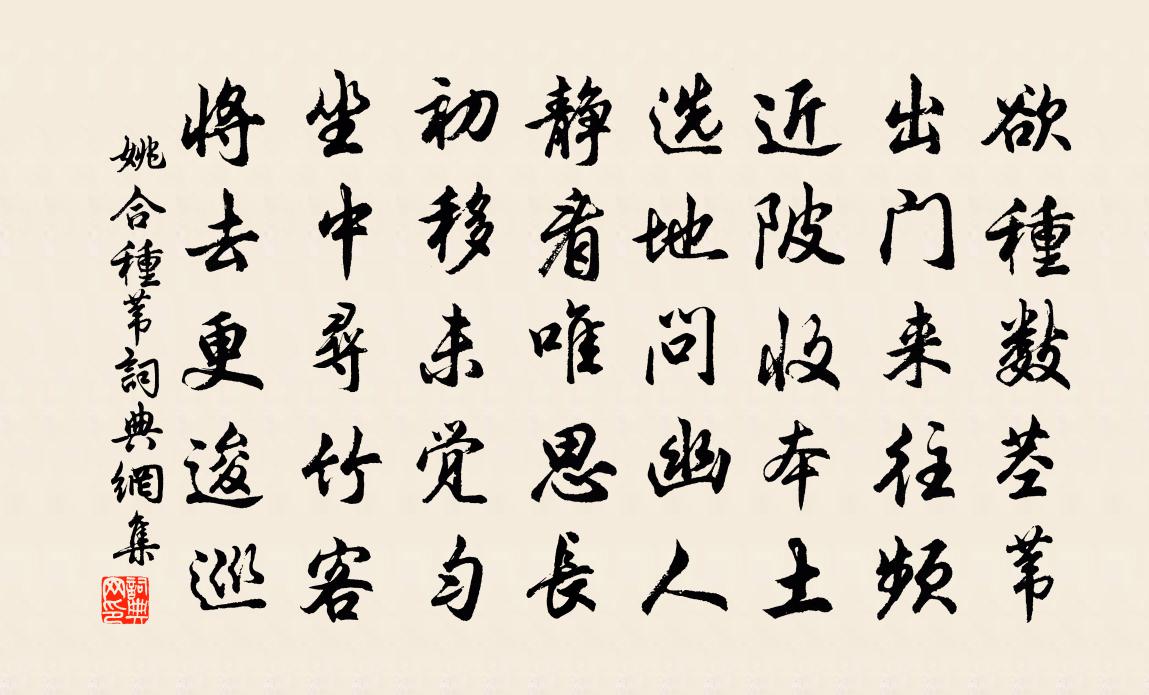 欲種數莖苇
出门来往頻
近陂收本土
选地问幽人
靜看唯思長
初移未觉匀
坐中尋竹客
將去更逡巡
姚合種苇詞典網集
詞典网印